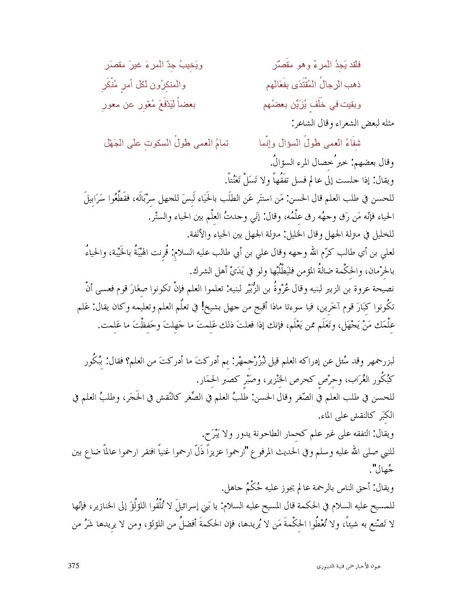 فلقد يَجِدُ المرءُ وهو مقَصّر ويَخِيبُ جِدّ المرءِ غيرَ مقصّر
ذهب الرجالُ المُقْتَدَى بفَعَالهم والمنكرُون لكل أمرٍ مُنْكَرٍ
وبقيت في خَلَفٍ يُزَيِّن بعضُهم بعضاً لَيَدْفعَ مُعْوِر عن معور
مثله لبعض الشعراء وقال الشاعر:
شِفَاءُ العمى طولُ السؤال وإنّما تمامُ العمى طولُ السكوت على الجَهْل
وقال بعضهم: خيرُ خصال المرء السؤالُ.
ويقال: إذا جلست إلى عالم فسل تفَقُّهاً ولا تَسَلْ تَعَنُّتاً.
للحسن في طلب العلم قال الحسن: مَن استتَر عَن الطلَب بالحَيَاء لَبِسَ للجهل سِرْبَالَه، فقَطِّعُوا سَرَابيلَ
الحياء فإنّه مَن رَق وجهُه رق عِلْمُه، وقال: إني وجدتُ العِلْم بين الحياء والسَّتْر.
للخليل في منزلة الجهل وقال الخليل: منزلة الجهل بين الحياء والأنَفة.
لعلي بن أبي طالب كرّم الله وجهه وقال علي بن أبي طالب عليه السلام: قُرِنت الهَيْبَةُ بالخَيْبة، والحياءُ
بالحِرْمان، والحِكْمة ضالةُ المؤمن فليَطْلُبْها ولو في يَدَيْ أهل الشرك.
نصيحة عروة بن الزبير لبنيه وقال عُرْوَةُ بن الزُّبَيْر لبنيه: تعلموا العلم فإنْ تكونوا صِغَارَ قوم فعسى أنْ
تكُونوا كِبَارَ قوم آخَرين، فيا سوءتا ماذا أقبح من جهل بشيخ! في تعلّم العلم وتعليمه وكان يقال: عَلم
علْمَك مَنْ يَجْهَل، وتَعَلّم ممن يَعْلَم، فإنك إذا فعلتَ ذلك عَلِمتَ ما جَهِلتَ وحَفِظْتَ ما عَلِمت.
لبزرجمهر وقد سُئل عن إدراكه العلم قيل لبُزُرْجِمهْر: بِم أدركتَ ما أدركتَ من العلم؟ فقال: ببُكُور
كبُكُور الغُرَاب، وحِرْصٍ كحرص الخِنْزير، وصَبْرٍ كصبر الحِمَار.
للحسن في طلب العلم في الصّغر وقال الحسن: طلبُ العلم في الصَّغر كالنَّقش في الحَجَر، وطلبُ العلم في
الكِبَر كالنقش على الماء.
ويقال: التفقه على غير علم كحمار الطاحونة يدور ولا يَبْرَح.
للنبي صلى الله عليه وسلم وفي الحديث المرفوع "ارحموا عزيزاً ذَلّ ارحموا غنياً افتقر ارحموا عالماً ضاع بين
جُهال".
ويقال: أحق الناس بالرحمة عالم يجوز عليه حُكْمُ جاهل.
للمسيح عليه السلام في الحكمة قال المسيح عليه السلام: يا بَني إسرائيلَ لا تُلْقُوا اللؤلُؤَ إلى الخنازير، فإنّها
لا تَصْنع به شيئاً، ولا تُعْطُوا الحِكْمةَ مَن لا يُريدها، فإن الحكمةَ أفضلُ من اللؤلؤ، ومن لا يريدها شَرٌ من
عيون الأخبار-ابن قتيبة الدينوري 375